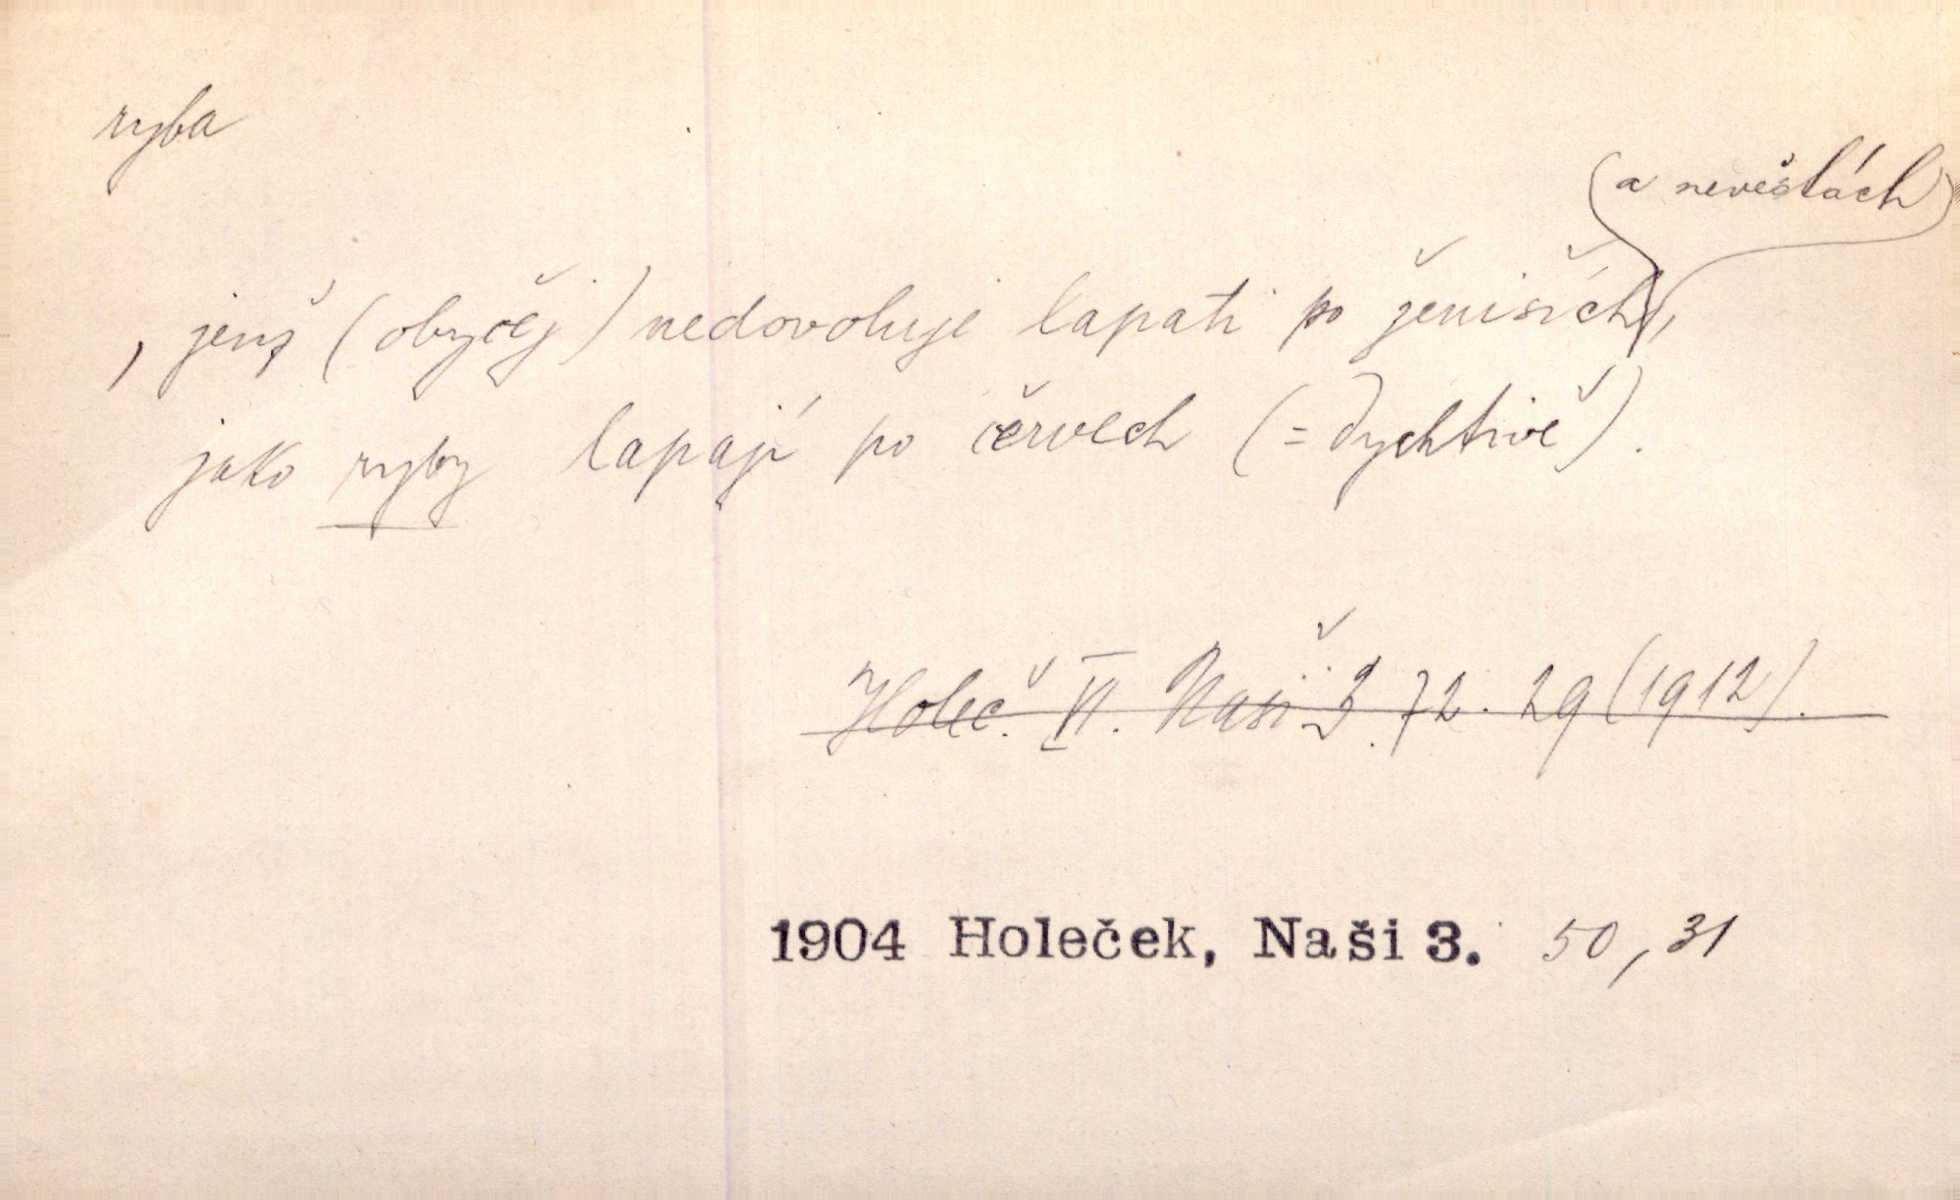 ryba
(a nevěstách)
, jenž (obyčej) nedovoluje lapati po ženiších,
jako ryby lapají po červech (= dychtivě).
Holeč. VI. Naši 3. 72. 29 (1912).
1904 Holeček, Naši 3. 50, 31